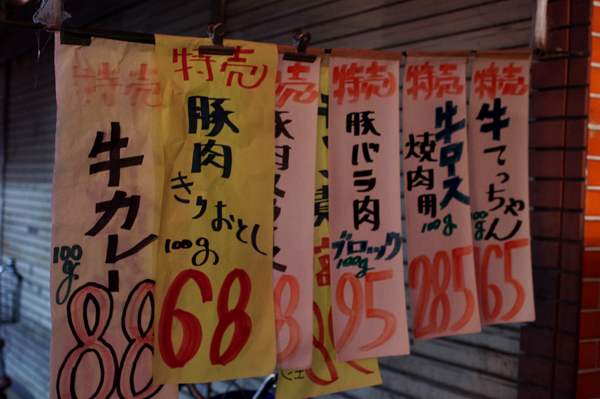 特売
牛カレー
100g
88
特売
豚肉
きりおとし
100g
68
特売
豚肉
特売
豚バラ肉
ブロック
100g
95
特売
牛ロース
焼肉用
100g
285
特売
牛てっちゃん
100g
65